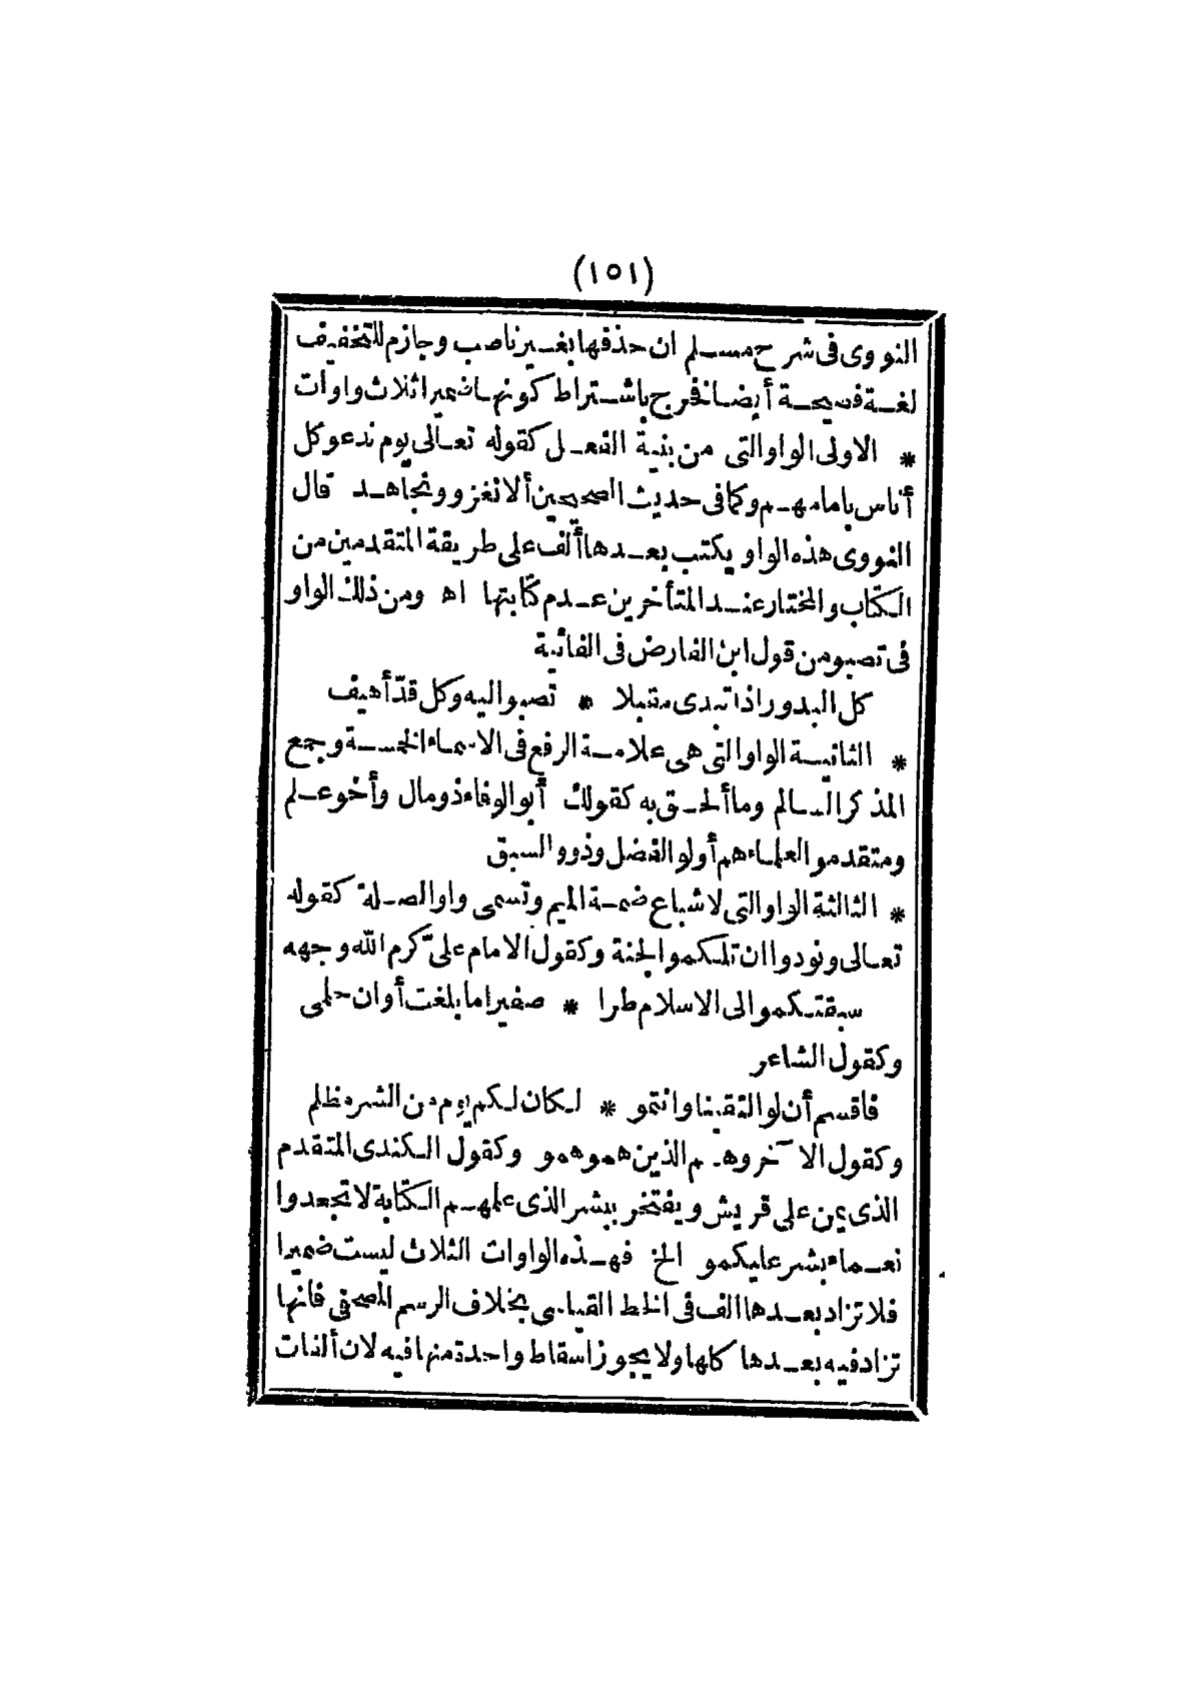 (١٥١)
النووى فى شرح مسلم ان حذفها بغير ناصب وجازم للتخفيف
لغة فصيحة أيضا فخرج باشتراط كونها ضميرا ثلاث واوات
* الاولى الواو التى من بنية الفعل كقوله تعالى يوم ندعو كل
أناس بامامهم وكما فى حديث الصحيحين ألا نغزو ونجاهد قال
النووى هذه الواو يكتب بعدها ألف على طريقة المتقدمين من
الكتاب والمختار عند المتأخرين عدم كتابتها اه ومن ذلك الواو
فى تصبو من قول ابن الفارض فى الفائية
كل البدور اذا تبدى مقبلا * تصبو اليه وكل قدّ أهيف
* الثانية الواو التى هى علامة الرفع فى الاسماء الخمسة وجمع
المذكر السالم وما ألحق به كقولك أبو الوفاء ذو مال وأخو علم
ومتقدمو العلماء هم أولو الفضل وذوو السبق
* الثالثة الواو التى لاشباع ضمة الميم وتسمى واو الصلة كقوله
تعالى ونودوا ان تلكمو الجنة وكقول الامام علىّ كرم الله وجهه
سبقتكمو الى الاسلام طرا * صغيرا ما بلغت أوان حلمى
وكقول الشاعر
فاقسم أن لو التقينا وانتمو * لكان لكم يوم من الشر مظلم
وكقول الآخر وهم الذين همو همو وكقول الكندى المتقدم
الذى يمن على قريش ويفتخر ببشر الذى علمهم الكتابة لا تجحدوا
نعماء بشر عليكمو الخ فهذه الواوات الثلاث ليست ضميرا
فلا تزاد بعدها الف فى الخط القياسى بخلاف الرسم المصحفى فانها
تزاد فيه بعدها كلها ولا يجوز اسقاط واحدة منها فيه لان ألفات